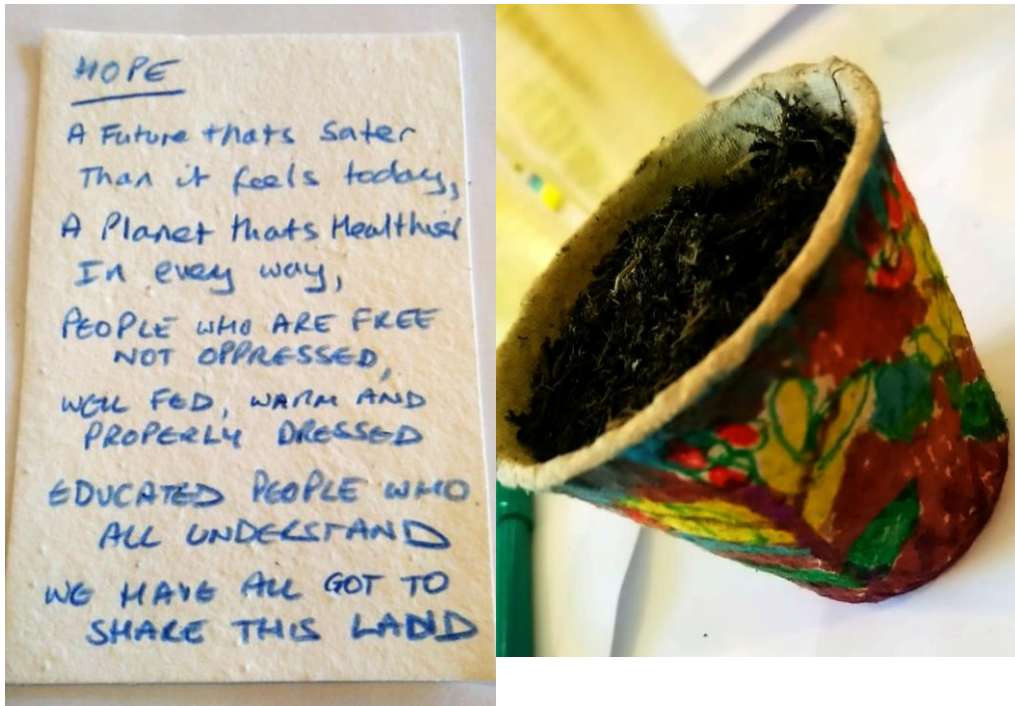 HOPE
A Future thats Safer
Than it feels today,
A Planet thats Healthier
In every way,
PEOPLE WHO ARE FREE
NOT OPPRESSED,
WELL FED, WARM AND
PROPERLY DRESSED
EDUCATED PEOPLE WHO
ALL UNDERSTAND
WE HAVE ALL GOT TO
SHARE THIS LAND